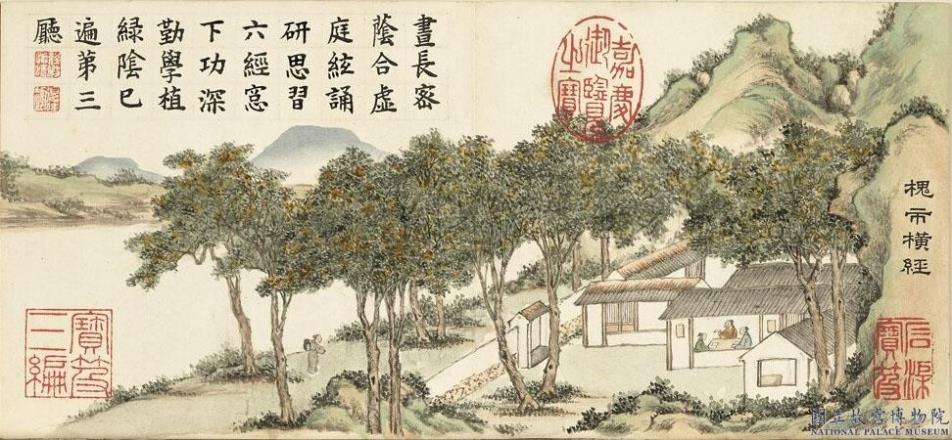 槐市橫經
晝長密
蔭合虛
庭絃誦
研思習
六經窓
下功深
勤學植
綠陰已
遍第三
廳
嘉慶御覽之寶
石渠寶笈
寶笈三編
國立故宮博物院
NATIONAL PALACE MUSEUM